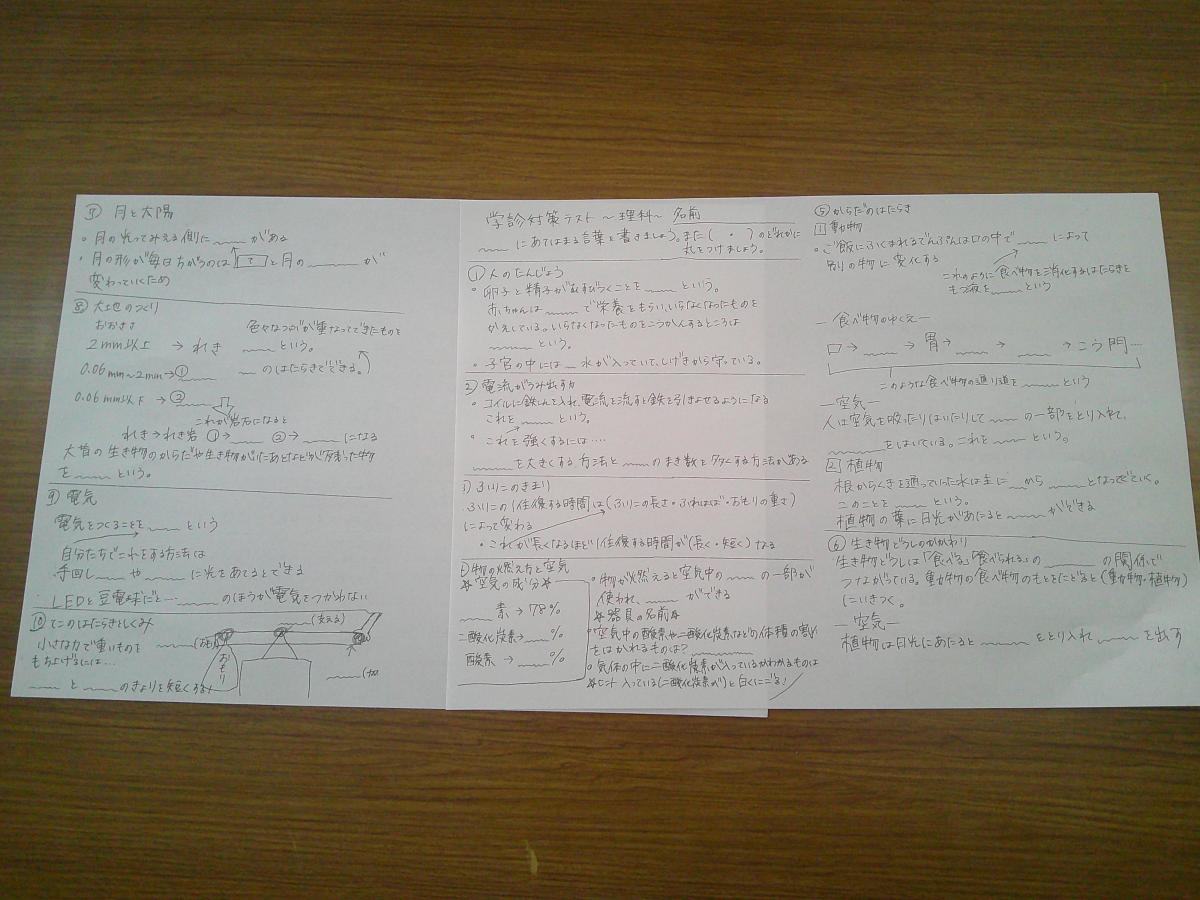 学診対策テスト ～理科～ 名前
＿＿＿にあてはまる言葉を書きましょう。また（ ・ ）のどれかに
丸をつけましょう。
① 人のたんじょう
・卵子と精子がむすびつくことを＿＿＿という。
赤ちゃんは＿＿＿で栄養をもらい、いらなくなったものを
かえしている。いらなくなったものをこうかんするところは
＿＿＿という。
・子宮の中には＿水が入っていて、しげきから守っている。
2) 電流がうみ出す力
・コイルに鉄しんを入れ、電流を流すと鉄を引きよせるようになる
これを＿＿＿という。
・これを強くするには….
＿＿＿を大きくする方法と＿＿＿のまき数を多くする方法がある
3) ふりこのきまり
ふりこの1往復する時間は（ふりこの長さ・ふれはば・おもりの重さ）
によって変わる
・これが長くなるほど1往復する時間が（長く・短く）なる
物の燃え方と空気
＊空気の成分＊
＿＿＿素→78%
二酸化炭素→＿＿＿%
酸素→＿＿＿%
・物が燃えると空気中の＿＿＿の一部が
使われ、＿＿＿ができる
＊器具の名前＊
・空気中の酸素や二酸化炭素などの体積の割合
をはかれるものは？＿＿＿
・気体の中に二酸化炭素が入っているかわかるものは
＊ヒント 入っている(二酸化炭素が)と白くにごる！
⑤ からだのはたらき
1 動物
・ご飯にふくまれるでんぷんは口の中で＿＿＿によって
別の物に変化する
このように食べ物を消化するはたらきを
もつ液を＿＿＿という
― 食べ物のゆくえ ―
口→＿＿＿→胃→＿＿＿→＿＿＿→こう門…
このような食べ物の通り道を＿＿＿という
―空気―
人は空気を吸ったりはいたりして＿＿＿の一部をとり入れて、
＿＿＿をはいている。これを＿＿＿という。
2 植物
根からくきを通っていった水は主に＿＿から＿＿＿となってでていく。
このことを＿＿＿という。
植物の葉に日光があたると＿＿＿ができる
⑥ 生き物どうしのかかわり
生き物どうしは「食べる」「食べられる」の＿＿＿の関係で
つながっている。動物の食べ物のもとをたどると（動物・植物）
にいきつく。
―空気―
植物は日光にあたると＿＿＿をとり入れ＿＿＿を出す
月と太陽
・月の光ってみえる側に＿＿＿がある
・月の形が毎日ちがうのは　と月の＿＿＿が
変わっていくため
⑧ 大地のつくり
おおきさ
2mm以上 → れき
0.06mm～2mm→①＿＿＿
0.06mm以下 → ②＿＿＿
色々なつぶが重なってできたものを
＿＿＿という。
＿のはたらきでできる。）
これが岩石になると
れき→れき岩 ①→＿＿＿ ②→＿＿＿になる
大昔の生き物のからだや生き物がいたあとなどが残った物
を＿＿＿という。
⑨ 電気
電気をつくることを＿＿＿という
自分たちでこれをする方法は
手回し＿＿＿や＿＿＿に光をあてるとできる
LEDと豆電球だと…＿＿＿のほうが電気をつかわない
⑩ てこのはたらきとしくみ
小さな力で重いものを
もち上げるには…
＿＿＿と＿＿＿のきょりを短くする
＿＿＿(支える)
おもり